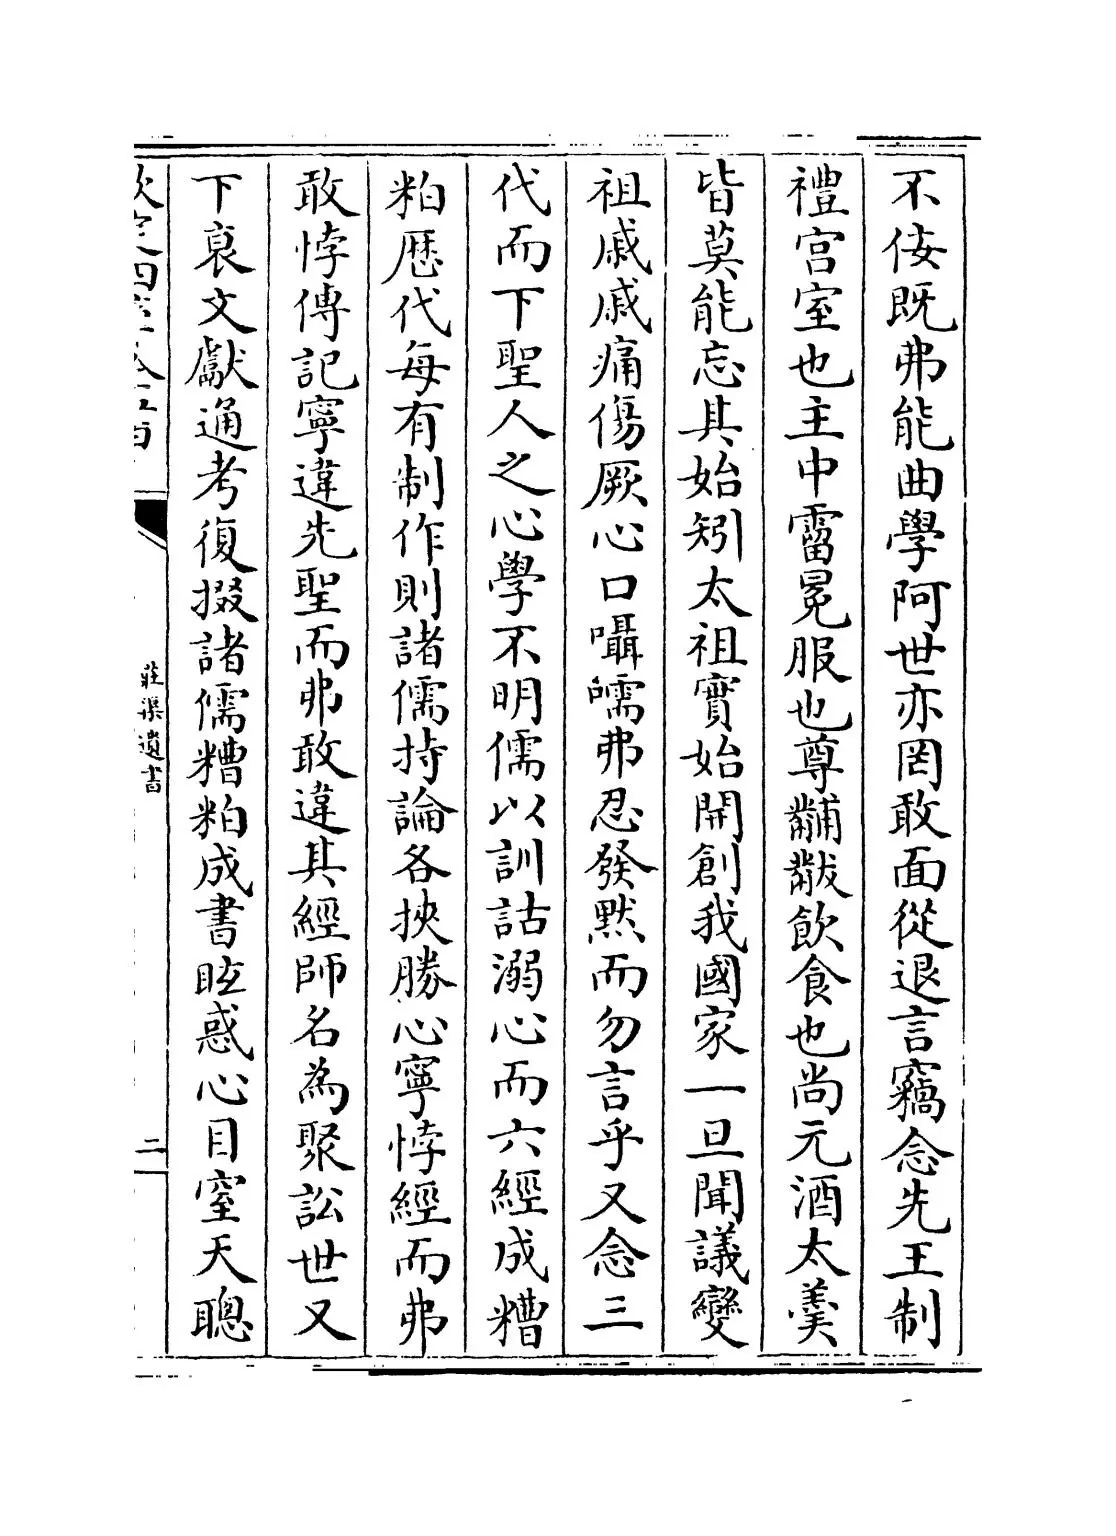 不佞既弗能曲學阿世亦罔敢面從退言竊念先王制
禮宫室也主中霤冕服也尊黼黻飲食也尚元酒太羹
皆莫能忘其始矧太祖實始開創我國家一旦聞議變
祖戚戚痛傷厥心口囁嚅弗忍發黙而勿言乎又念三
代而下聖人之心學不明儒以訓詁溺心而六經成糟
粕歴代每有制作則諸儒持論各挾勝心寧悖經而弗
敢悖傳記寧違先聖而弗敢違其經師名為聚訟世又
下裒文獻通考復掇諸儒糟粕成書眩惑心目窒天聰
莊渠遺書
二